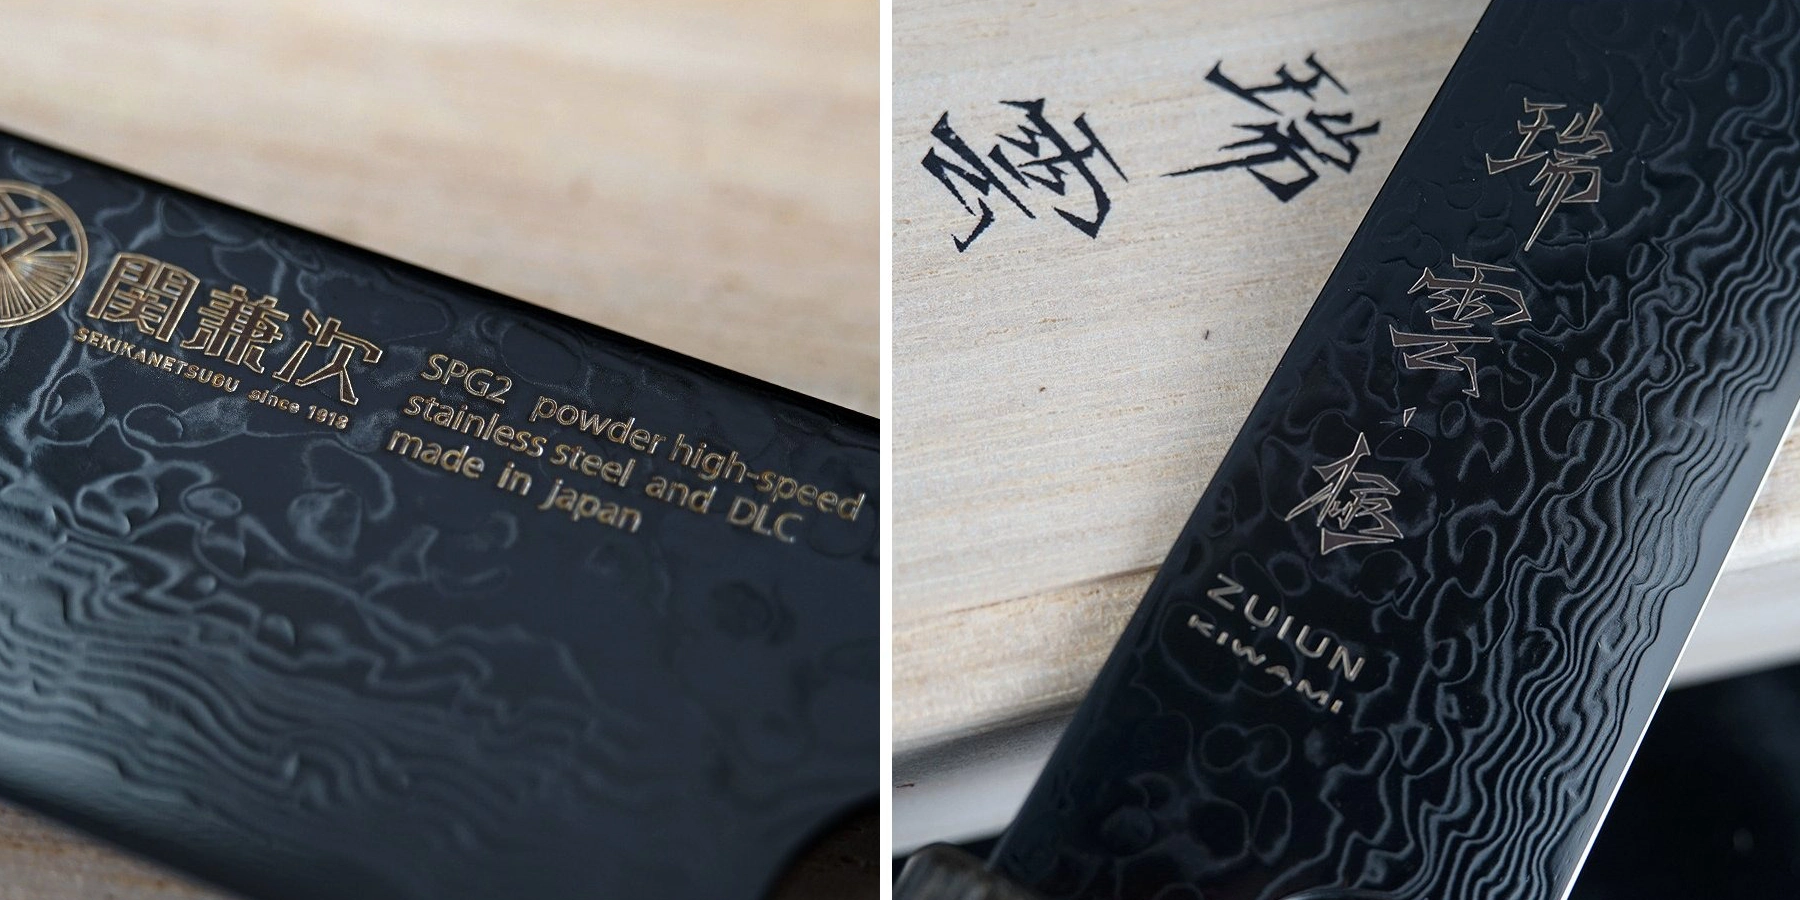 関兼次
SEKIKANETSUGU since 1918
SPG2 powder high-speed
stainless steel and DLC
made in japan
瑞雲
瑞雲 極
ZUIUN
KIWAMI